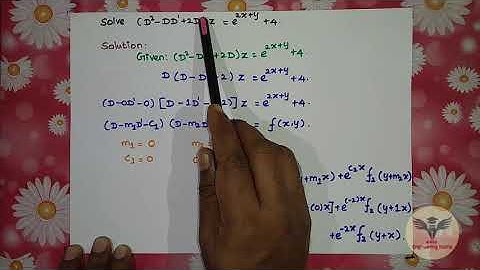 Solve (D²-DD'+2D)z = e^{2x+y} +4.
Solution:
Given: (D²- +2D)z = e^{2x+y}+4
D (D- 2) z = e^{2x+y}+4.
(D-0D'-0) [D-1D'- 2)] z = e^{2x+y}+4.
(D-m₁D'-C₁) (D-m₂D' = f(x,y).
m₁ = 0
C₁ = 0
+m₁x)+e^{C₂x} f₂(y+m₂x)
(0)x]+e^{(-2)x} f₂(y+1x)
+e^{-2x} f₂(y+x).